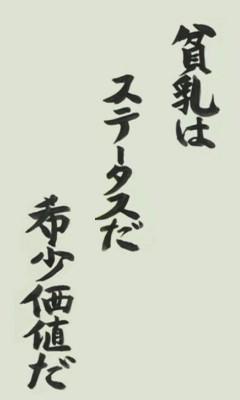 貧乳は
ステータスだ
希少価値だ